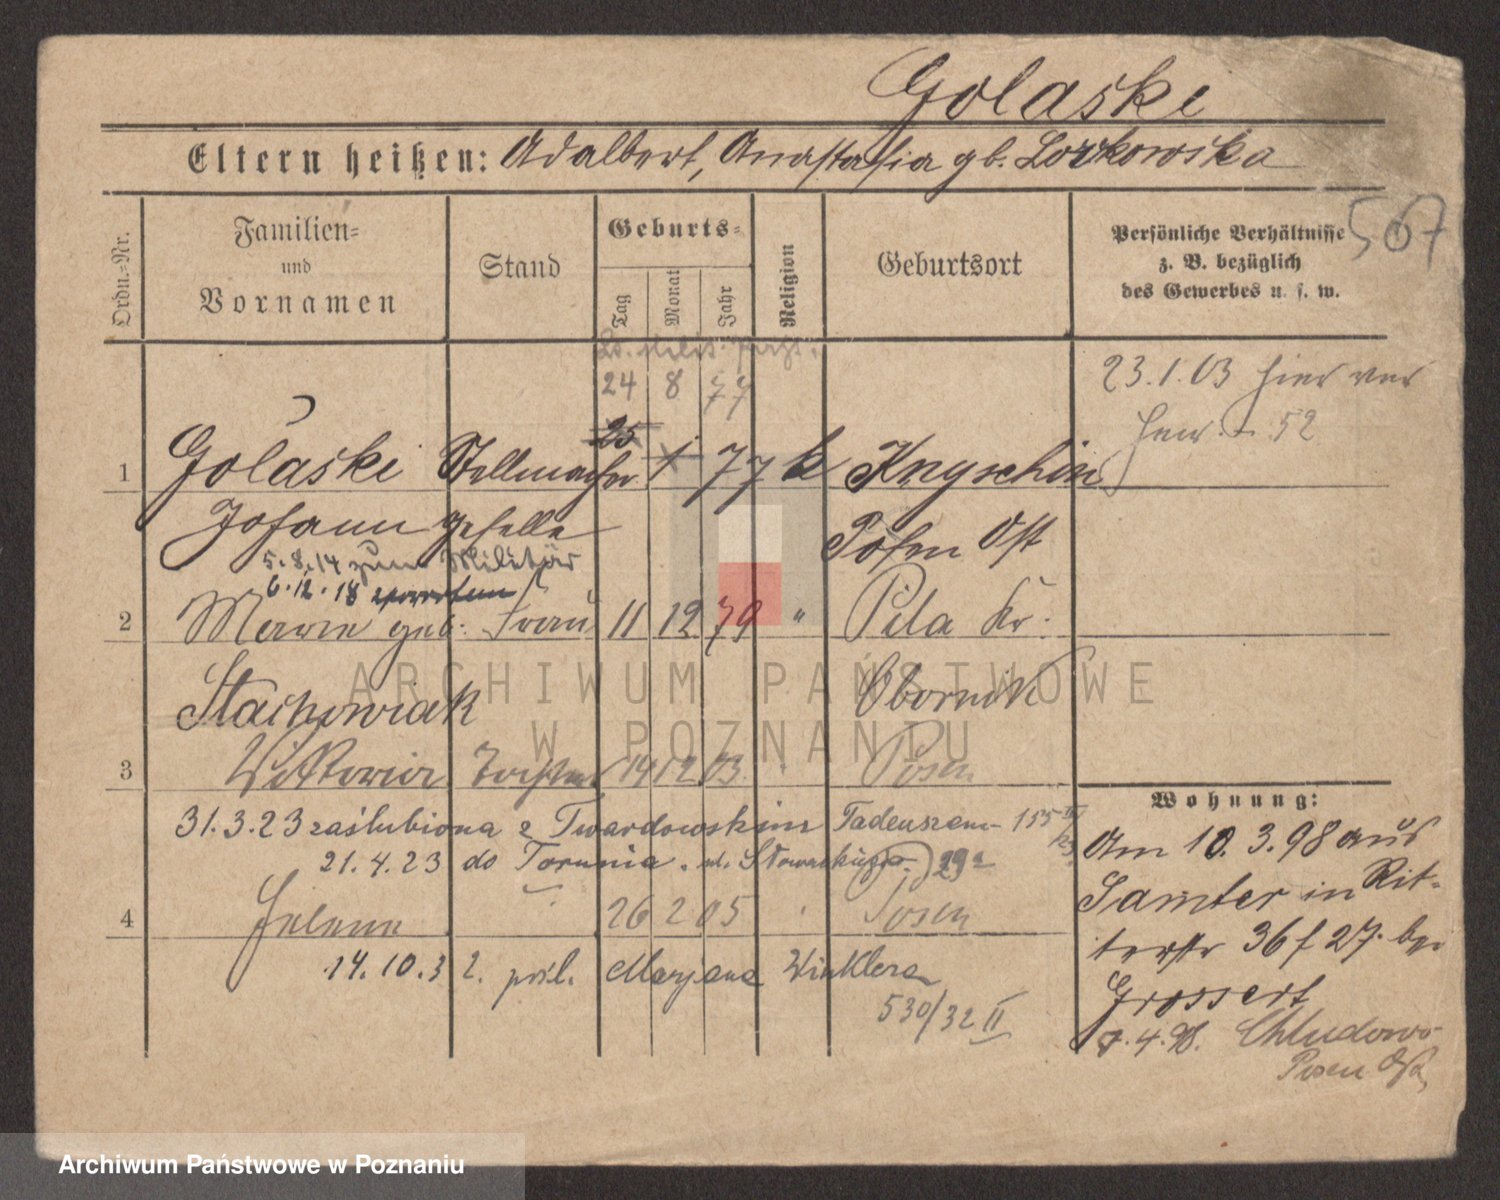 Golaski
Eltern heißen: Adalbert, Anastasia gb. Lorkowska
507
Ordn.=Nr.
Familien=
und
Vornamen
Stand
Geburts=
Tag
Monat
Jahr
Religion
Geburtsort
Persönliche Verhältnisse
z. B. bezüglich
des Gewerbes u. s. w.
24 8 77
23.1.03 hier
52
25
1 Golaski Stellmacher 1 77 k Knyschin
Johann Geselle Posen Ost
5.8.14 zum Militär
6.12.18
2 geb. Frau 11 12 79 " Pila Kr.
Stachowiak Obornik
3 Wiktoria Tochter 14 12 03 " Posen
31.3.23 zaślubiona z Twardowskim Tadeuszem 155
21.4.23 do Torunia. ul. 29a
4 Helena 26 2 05 Posen
14.10.32. pośl. Marjana Winklera
530/32 II
Wohnung:
Am 10.3.98 aus
Samter in Rit-
terstr 36 f 27. bei
Grossert
7.4.98. Chludowo
Posen Ost
ARCHIWUM PAŃSTWOWE
W POZNANIU
Archiwum Państwowe w Poznaniu